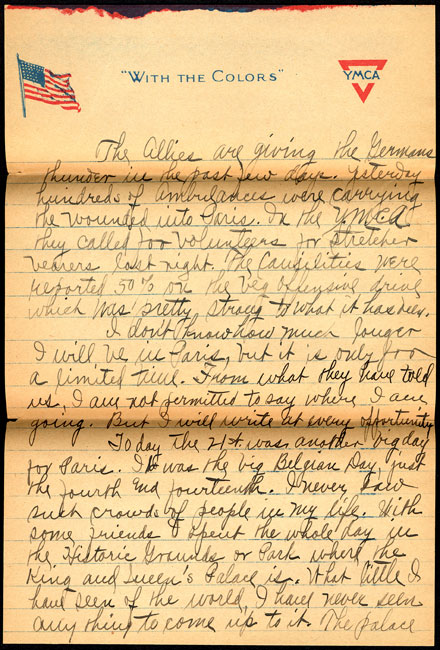 "WITH THE COLORS"
YMCA
The Allies are giving the Germans
thunder in the past few days. Yesterday
hundreds of ambulances were carrying
the wounded into Paris. In the YMCA
they called for volunteers for stretcher
bearers last night. The Causilities were
reported 50% on the big offensive drive
which was pretty strong to what it has been.
I don't know how much longer
I will be in Paris, but it is only for
a limited time. From what they have told
us. I am not permitted to say where I am
going. But I will write at every opportunity
Today the 21st was another big day
for Paris. It was the big Belgian Day, just
the fourth and fourteenth. I never saw
such crowds of people in my life. With
some friends I spent the whole day in
the Historic Grounds or Park where the
King and Queen's Palace is. What little I
have seen of the world, I have never seen
any thing to come up to it. The palace